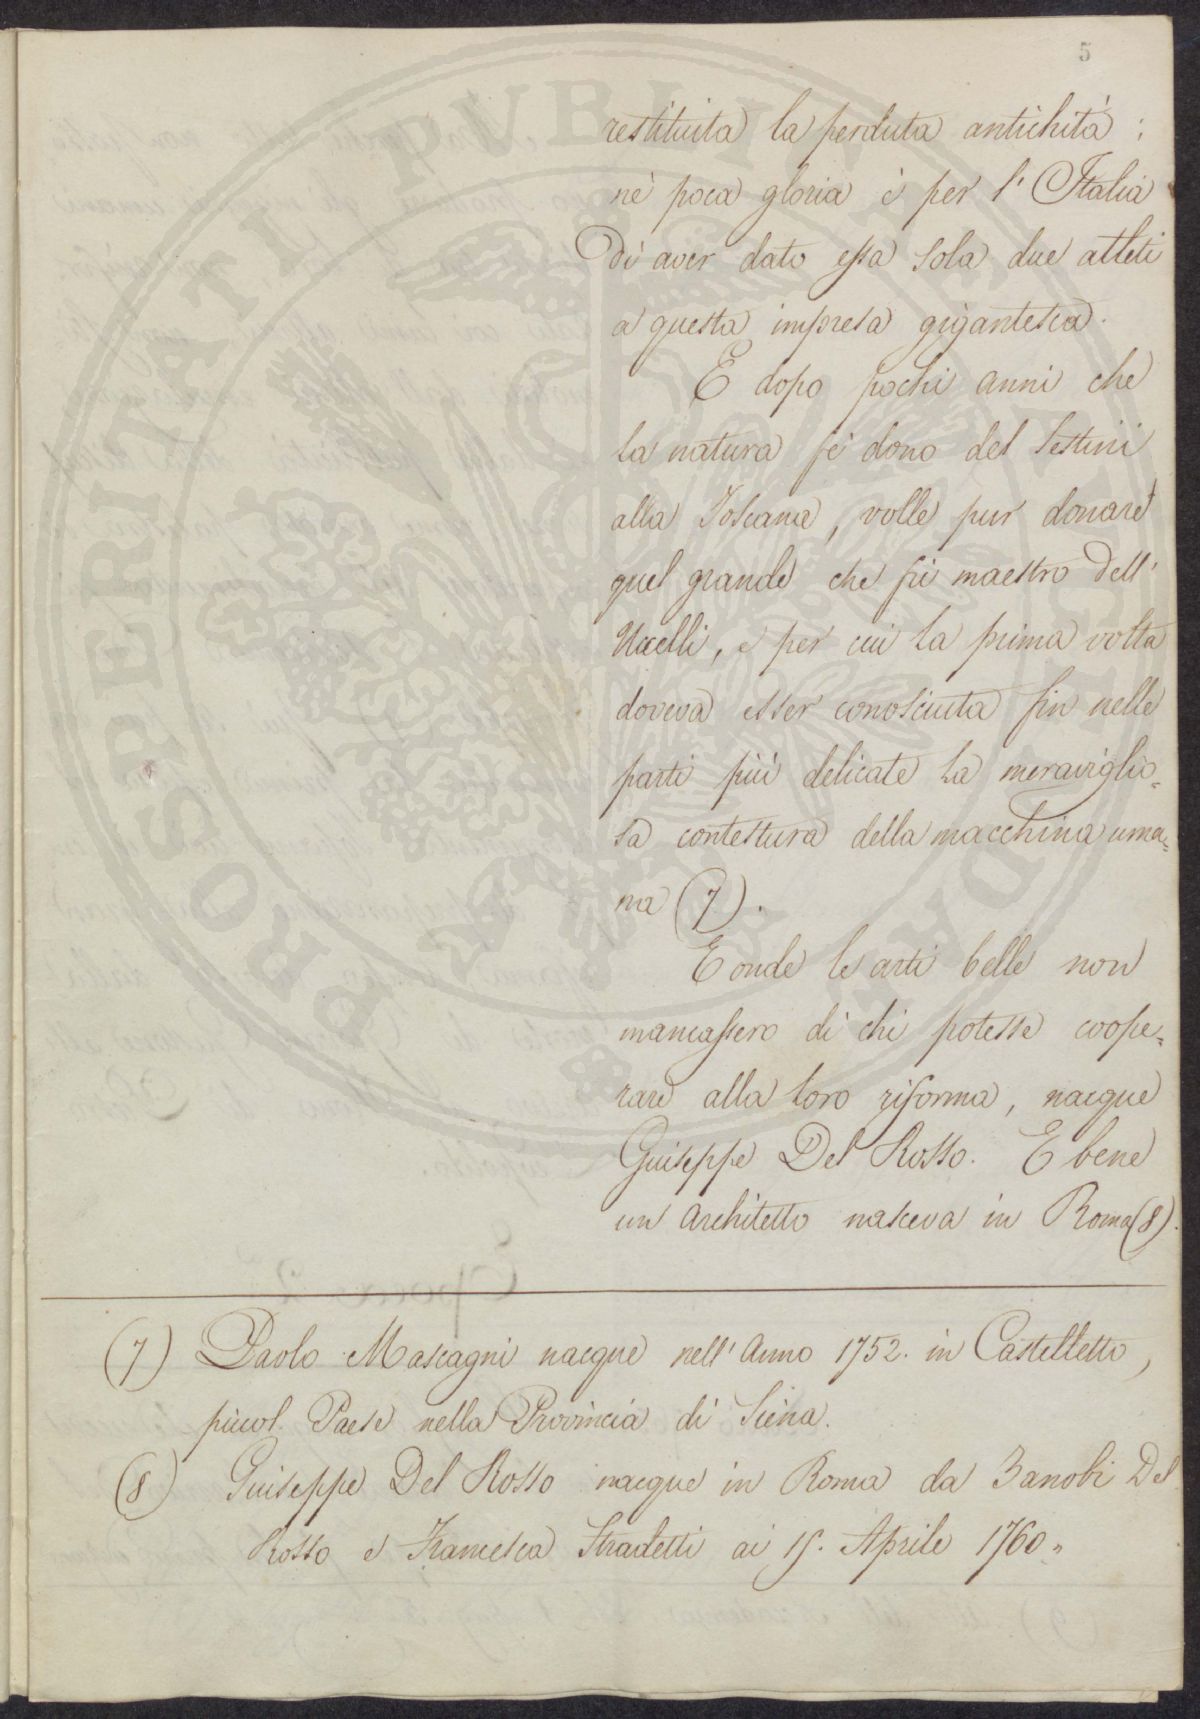 5
restituita la perduta antichità:
nè poca gloria è per l'Italia
di aver dato essa sola due atleti
a questa impresa gigantesca.
E dopo pochi anni che
la natura fè dono del Sestini
alla Toscana, volle pur donare
quel grande che fù maestro dell'
Uccelli, e per cui la prima volta
doveva esser conosciuta fin nelle
parti più delicate la meraviglio=
sa contestura della macchina uma=
na (7).
E onde le arti belle non
mancassero di chi potesse coope=
rare alla loro riforma, nacque
Giuseppe Del Rosso. E bene
un Architetto nasceva in Roma (8).
(7) Paolo Mascagni nacque nell'Anno 1752. in Castelletto,
piccol Paese nella Provincia di Siena.
(8) Giuseppe Del Rosso nacque in Roma da Zanobi Del
Rosso e Francesca Stradetti ai Aprile 1760.
PROSPERITATI PVBLICAE